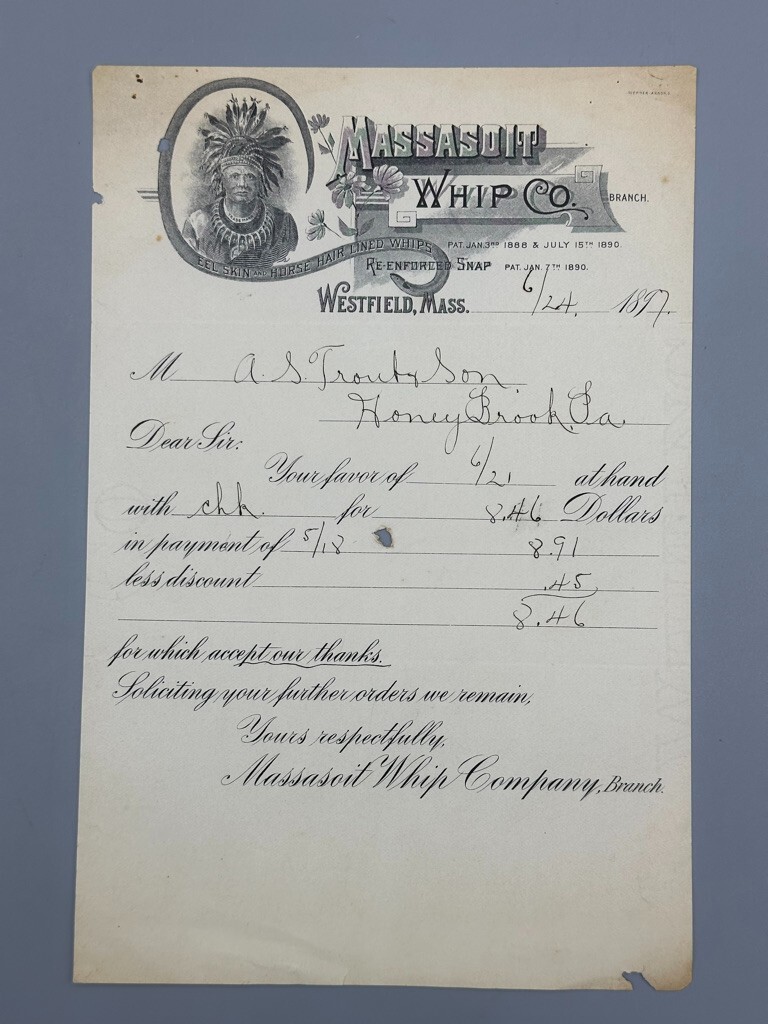 MASSASOIT
WHIP CO. BRANCH.
EEL SKIN AND HORSE HAIR LINED WHIPS PAT. JAN. 3RD 1888 & JULY 15TH 1890.
RE-ENFORCED SNAP PAT. JAN. 7TH 1890.
WESTFIELD, MASS. 6/24. 1897.
M A. S. Trout & Son
Honey Brook, Pa.
Dear Sir:
Your favor of 6/21 at hand
with chk. for 8.46 Dollars
in payment of 5/18 8.91
less discount .45
8.46
for which accept our thanks.
Soliciting your further orders we remain,
Yours respectfully,
Massasoit Whip Company, Branch.